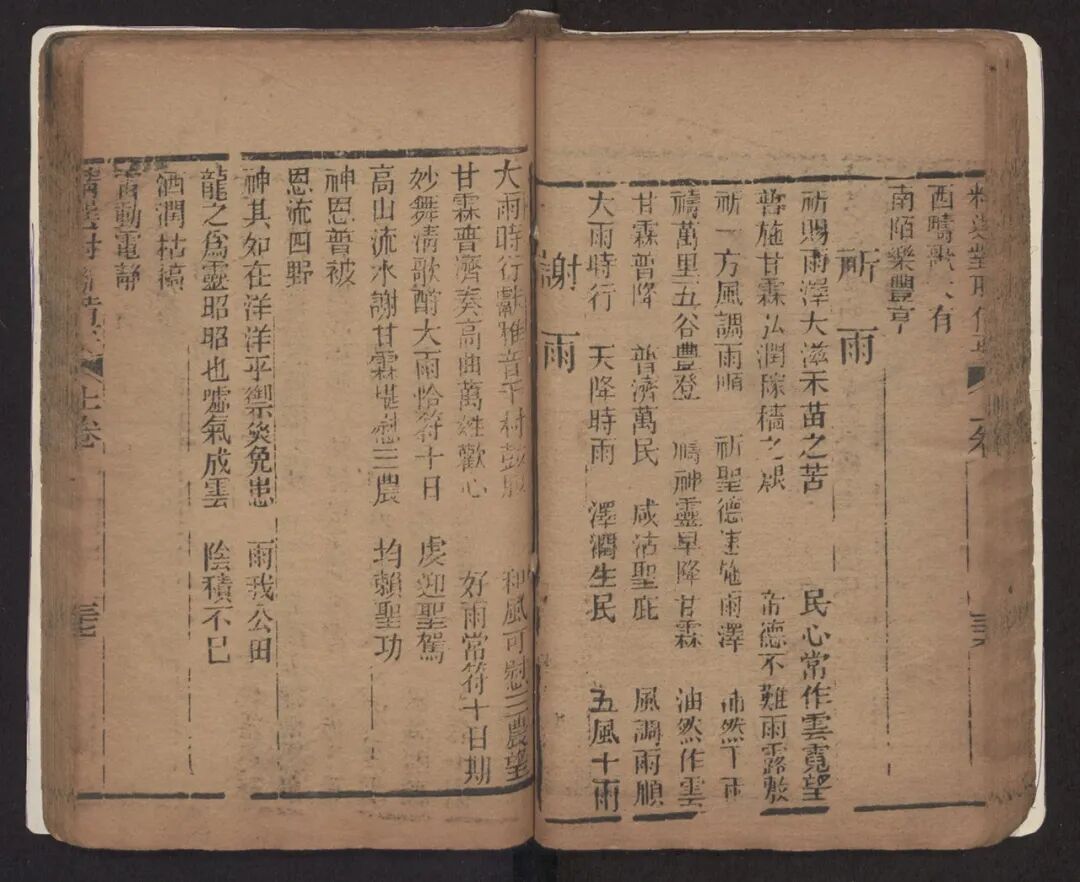 西疇歌大有
南陌樂豐亨
祈雨
祈賜雨澤大滋禾苗之苦 民心常作雲霓望
普施甘霖弘潤稼穡之艱 帝德不難雨露敷
祈一方風調雨順 祈聖德速施雨澤 沛然下雨
禱萬里五谷豊登 禱神靈早降甘霖 油然作雲
甘霖普降 普濟萬民 咸沾聖庇 風調雨順
大雨時行 天降時雨 澤潤生民 五風十雨
謝雨
大雨時行獻雅音千村鼓 和風可慰三農望
甘霖普濟奏高曲萬姓歡心 好雨當符十日期
妙舞清歌酧大雨恰符十日 虔迎聖駕
高山流水謝甘霖堪慰三農 均賴聖功
神恩普被
恩流四野
神其如在洋洋乎禦災免患 雨我公田
龍之爲靈昭昭也噓氣成雲 陰積不已
洒潤枯槁
雷動電
上卷